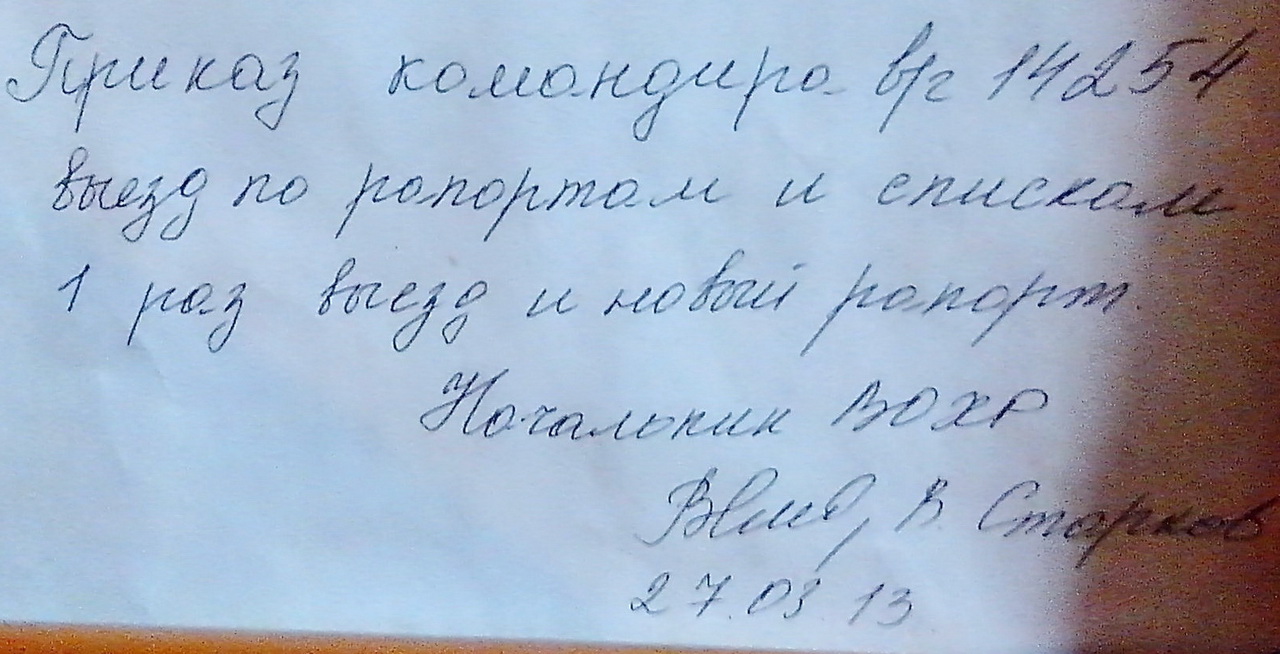 Приказ командира в/ч 14254
выезд по рапортам и спискам
1 раз выезд и новый рапорт.
Начальник ВОХР
В. Старков
27.03 13